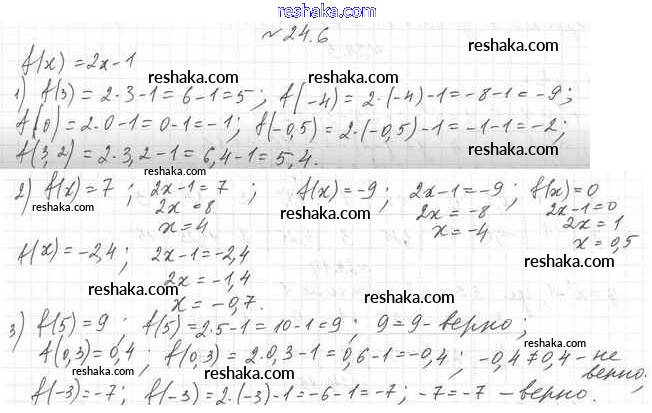 reshaka.com
№24.6
f(x)=2x-1
reshaka.com
reshaka.com
1) f(3)=2·3-1=6-1=5; f(-4)=2·(-4)-1=-8-1=-9;
f(0)=2·0-1=0-1=-1; f(-0,5)=2·(-0,5)-1=-1-1=-2;
f(3,2)=2·3,2-1=6,4-1=5,4.
reshaka.com
reshaka.com
2) f(x)=7; 2x-1=7; f(x)=-9; 2x-1=-9; f(x)=0
2x=8 2x=-8 2x-1=0
x=4 x=-4 2x=1
x=0,5
reshaka.com
reshaka.com
reshaka.com
f(x)=-2,4; 2x-1=-2,4
2x=-1,4
x=-0,7.
reshaka.com
reshaka.com
reshaka.com
3) f(5)=9; f(5)=2·5-1=10-1=9; 9=9-верно;
reshaka.com
f(0,3)=0,4; f(0,3)=2·0,3-1=0,6-1=-0,4; -0,4≠0,4-не
верно.
reshaka.com
reshaka.com
reshaka.com
f(-3)=-7; f(-3)=2·(-3)-1=-6-1=-7; -7=-7-верно.
reshaka.com